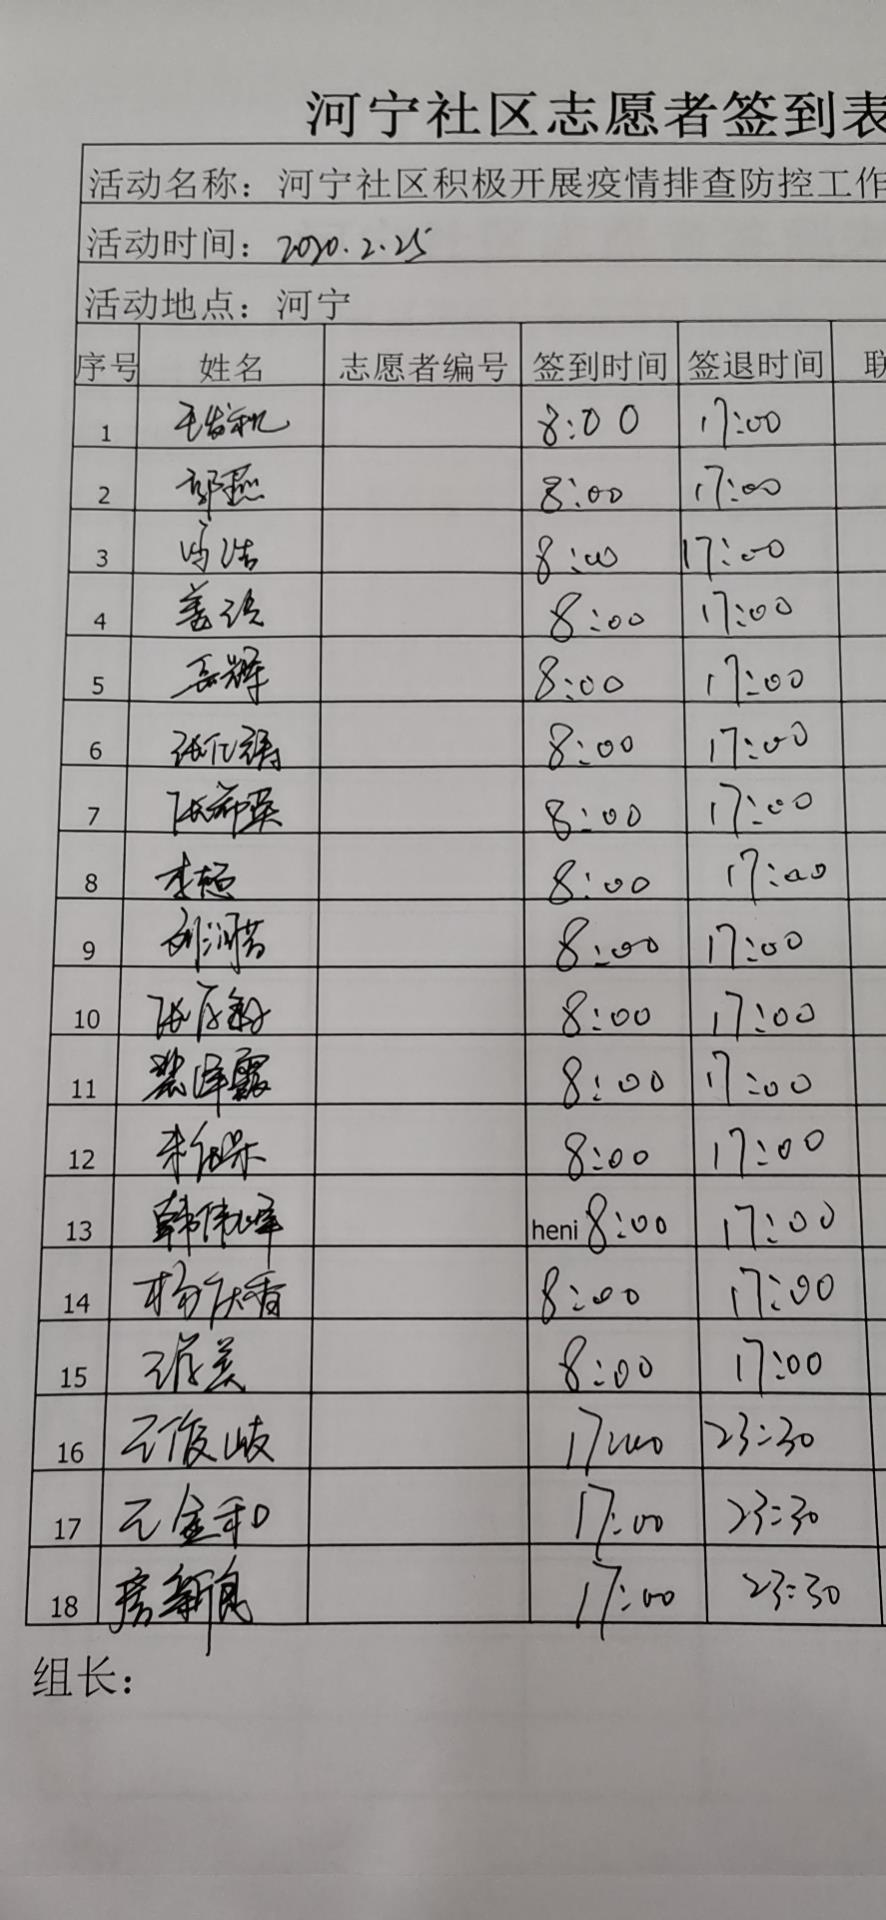 河宁社区志愿者签到表
活动名称：河宁社区积极开展疫情排查防控工作
活动时间：2020.2.25
活动地点：河宁
序号 姓名 志愿者编号 签到时间 签退时间 联
1 8:00 17:00
2 郭燕 8:00 17:00
3 冯洁 8:00 17:00
4 8:00 17:00
5 岳辉 8:00 17:00
6 张亿鹏 8:00 17:00
7 张希英 8:00 17:00
8 李桓 8:00 17:00
9 刘润惜 8:00 17:00
10 8:00 17:00
11 裴泽霞 8:00 17:00
12 8:00 17:00
13 韩伟峰 heni 8:00 17:00
14 杨庆香 8:00 17:00
15 8:00 17:00
16 王俊岐 17:00 23:30
17 王金和 17:00 23:30
18 房新良 17:00 23:30
组长：